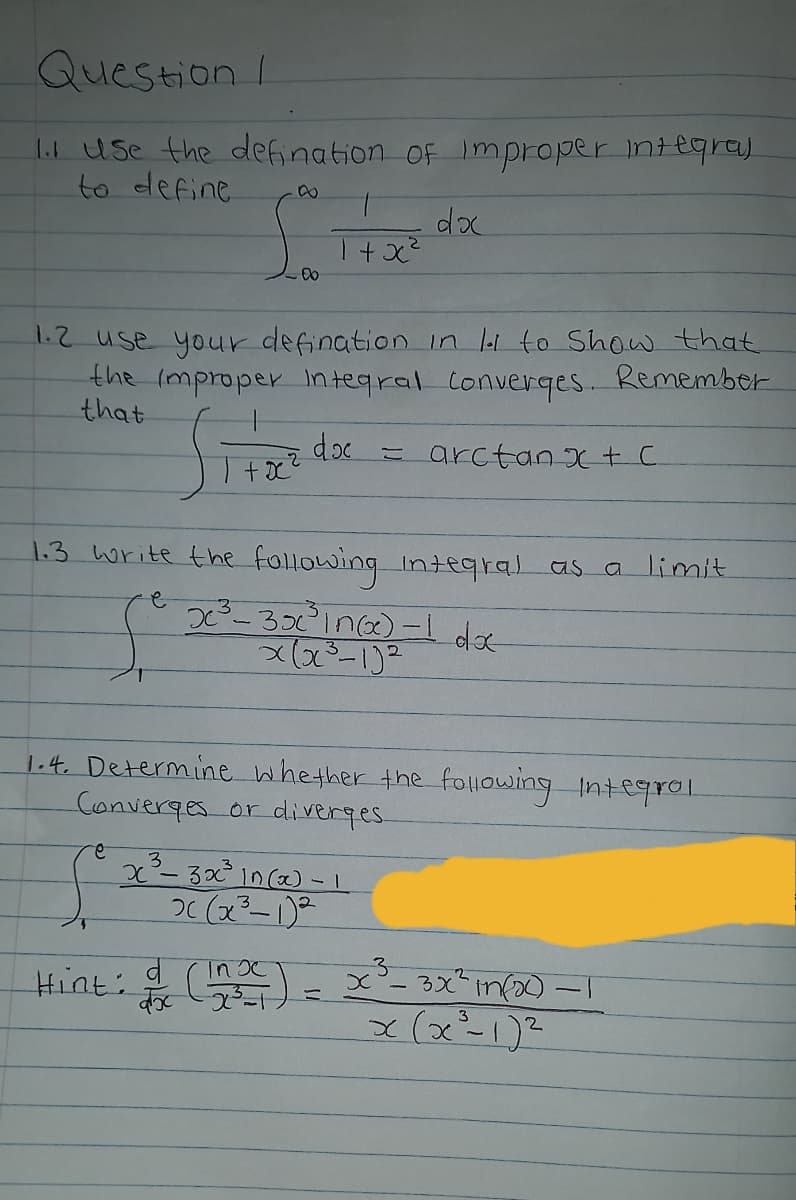 Question 1
1.1 use the defination of improper integral
to define
∫_{-∞}^{∞} 1/(1+x²) dx
1.2 use your defination in 1.1 to show that
the improper integral converges. Remember
that
∫ 1/(1+x²) dx = arctan x + C
1.3 write the following integral as a limit
∫_{1}^{e} (x³-3x³ln(x)-1)/(x(x³-1)²) dx
1.4. Determine whether the following integral
Converges or diverges
∫_{1}^{e} (x³-3x³ln(x)-1)/(x(x³-1)²)
Hint: d/dx (ln x/(x³-1)) = (x³-3x²ln(x)-1)/(x(x³-1)²)